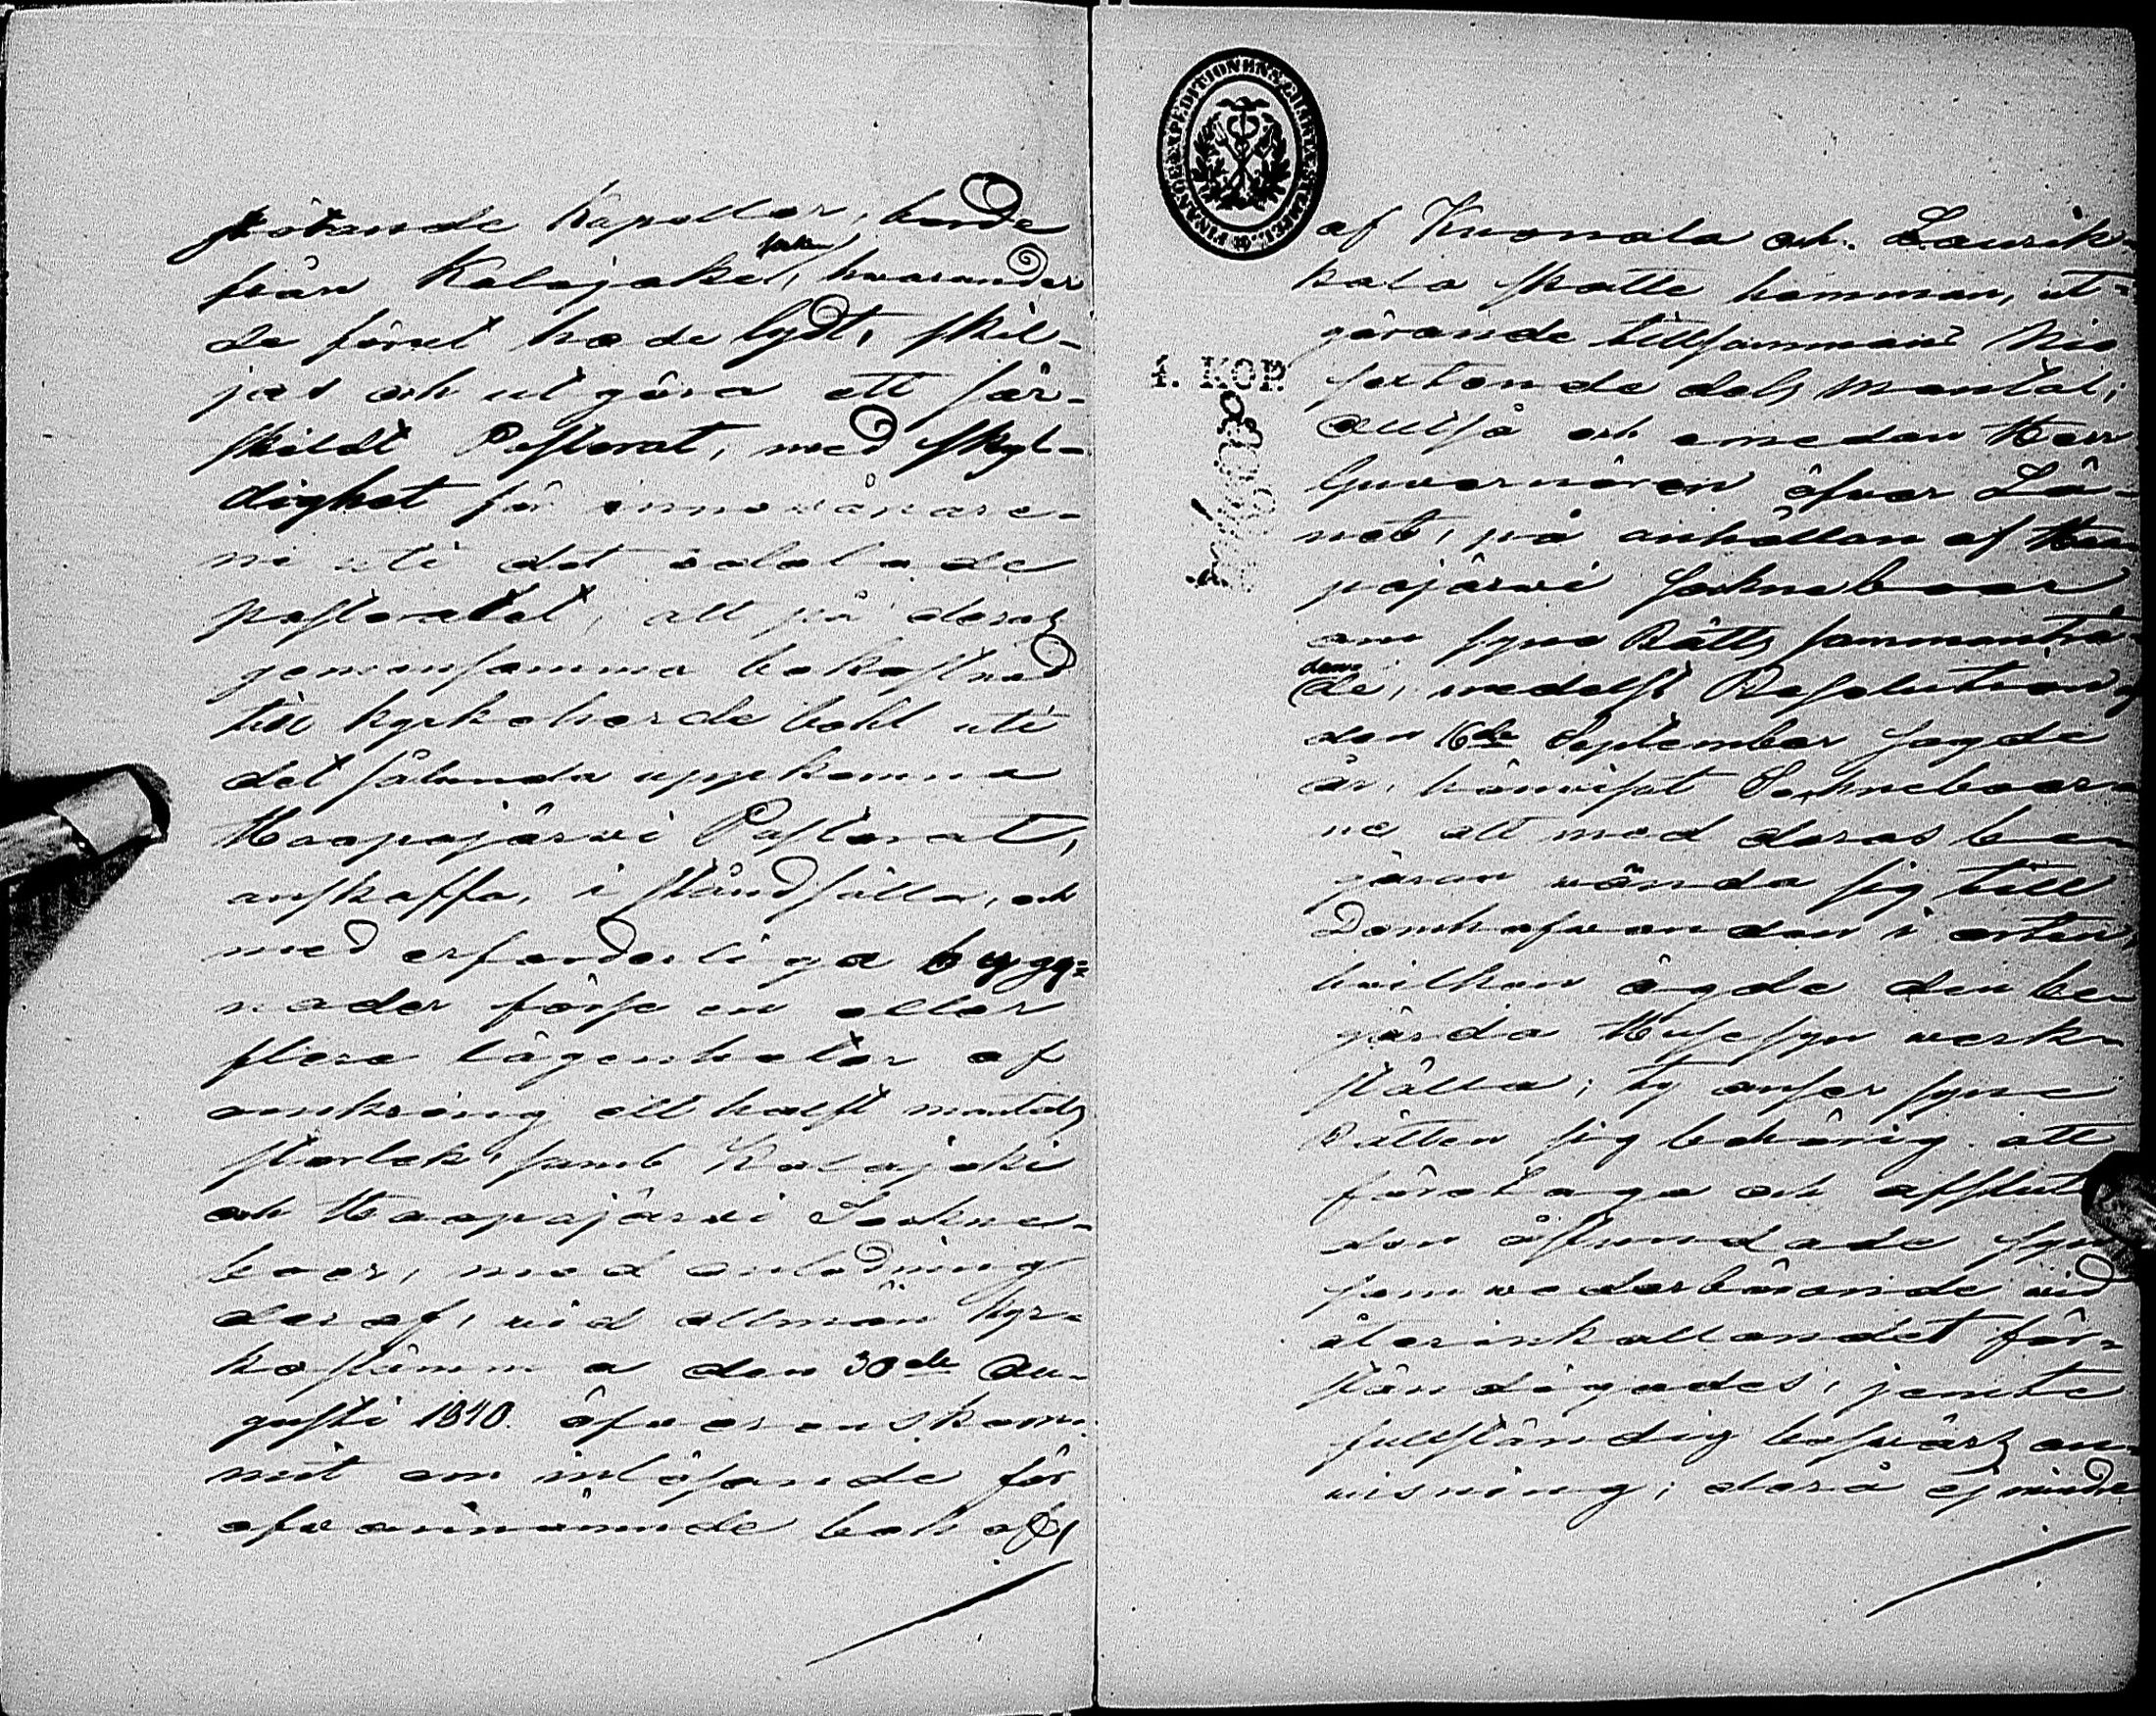 stötande Kapeller, borde
från Kalajoki, socken hwarunder
de förut hade lydt, skil-
jas och utgöra ett sär-
skildt Pastorat, med skyl-
dighet för innevånare-
ne uti det sålunda
pastoratet, att på deras
gemensamma bekostnad
till kyrkoherde bohl uti
det sålunda uppkomna
Haapajärwi Pastorat,
anskaffa, i ståndsätta, och
med erforderliga bygg-
nader förse en eller
flere lägenheter af
omkring ett halft mantals
storlek, samt Kalajoki
och Haapajärwi Sockne-
boer, med anledning
deraf, vid allmän kyr-
kostämma den 30de Au-
gusti 1840. öfverenskom-
mit om inlösande för
ofvannämnde behof,
FINANCE EXPEDITIONENS CHARTÆ STEMPEL
4. KOP.
af Kuonala och Laurik-
kala skatte hemman, ut-
görande tillsammans Nio
sextonde dels mantal;
Altså och emedan Herr
Guvernören öfver Lä-
net, på anhållan af Haa-
pajärwi Sockneboer
om syne Rätts sammanträ-
dande, medelst Resolution
den 16de September sagde
år, hänvist Sockneboer-
ne att med deras be-
gäran vända sig till
Domhafvanden i orten,
hvilken ägde den be-
gärda Husesyn verk-
ställa; ty anser syne
Rätten sig behörig att
företaga och afsluta
den åstundade syn
som vederbörande vid
återinkallandet för-
ständigades, jemte
fullständig besvärs an-
visning; derå ej mindre